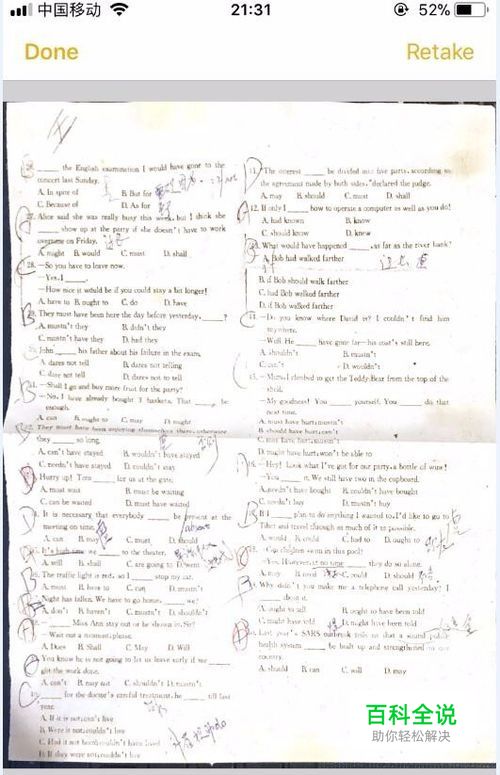 中国移动
21:31
52%
Done
Retake
the English examination I would have gone to the
concert last Sunday.
A. In spite of B. But for
C. Because of D. As for
Alice said she was really busy this week, but I think she
show up at the party if she doesn't have to work
overtime on Friday.
A. might B. would C. must D. shall
28. —So you have to leave now.
—Yes, I
—How nice it would be if you could stay a bit longer!
A. have to B. ought to C. do D. have
They must have been here the day before yesterday, ?
A. mustn't they B. didn't they
C. mustn't they have D. had they
John his father about his failure in the exam.
A. dares not tell B. dares not telling
C. dare not to tell D. dares not to tell
—Shall I go and buy more fruit for the party?
—No, I have already bought 3 baskets. That be
enough.
A. can B. ought to C. may D. might
They must have been enjoying themselves there, otherwise
they so long.
A. can't have stayed B. wouldn't have stayed
C. needn't have stayed D. couldn't stay
Hurry up! Tom for us at the gate.
A. must wait B. must be waiting
C. can be waited D. must have waited
It is necessary that everybody be present at the
meeting on time.
A. can B. may C. must D. should
It's high time we to the theater.
A. will B. shall C. are going to D. went
The traffic light is red, so I stop my car.
A. must B. have to C. can D. mustn't
Night has fallen. We have to go home, we?
A. don't B. haven't C. mustn't D. shouldn't
Miss Ann stay out or be shown in, Sir?
—Wait out a moment, please.
A. Does B. Shall C. May D. Will
You know he is not going to let us leave early if we
get the work done.
A. can't B. may not C. shouldn't D. mustn't
for the doctor's careful treatment, he till last
year.
A. If it is not; can't live
B. Were it not; couldn't live
C. Had it not been; couldn't have lived
D. If they were not; couldn't live
The interest be divided into five parts, according to
the agreement made by both sides," declared the judge.
A. may B. should C. must D. shall
12. If only I how to operate a computer as well as you do!
A. had known B. knew
C. should know D. know
What would have happened , as far as the river bank?
A. Bob had walked farther
B. if Bob should walk farther
C. had Bob walked farther
D. if Bob walked farther
—Do you know where David is? I couldn't find him
anywhere.
—Well. He have gone far—his coat's still here.
A. shouldn't B. mustn't
C. can't D. wouldn't
—Mum, I climbed to get the Teddy Bear from the top of the
shelf.
—My goodness! You yourself. You do that
next time.
A. must have hurt; mustn't
B. should have hurt; can't
C. may have hurt; mustn't
D. might have hurt; won't be able to
—Hey! Look what I've got for our party, a bottle of wine!
—You it. We still have two in the cupboard.
A. needn't have bought B. couldn't have bought
C. needn't buy D. mustn't buy
If I plan to do anything I wanted to, I'd like to go to
Tibet and travel through as much of it as possible.
A. would B. could C. had to D. ought to
—Can children swim in this pool?
—Yes. However, at no time they do so alone.
A. may B. need C. could D. should
Why didn't you make me a telephone call yesterday? I
done it.
A. ought to tell B. ought to have been told
C. might have told D. might have been told
Last year's SARS outbreak tells us that a sound public
health system be built up and strengthened in our
country.
A. should B. can C. will D. may
百科全说
助你轻松解决